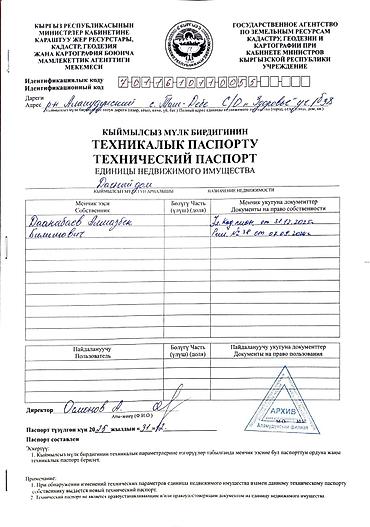 КЫРГЫЗ РЕСПУБЛИКАСЫНЫН
МИНИСТРЛЕР КАБИНЕТИНЕ
КАРАШТУУ ЖЕР РЕСУРСТАРЫ,
КАДАСТР, ГЕОДЕЗИЯ
ЖАНА КАРТОГРАФИЯ БОЮНЧА
МАМЛЕКЕТТИК АГЕНТТИГИ
МЕКЕМЕСИ
ГОСУДАРСТВЕННОЕ АГЕНТСТВО
ПО ЗЕМЕЛЬНЫМ РЕСУРСАМ
КАДАСТРУ, ГЕОДЕЗИИ И
КАРТОГРАФИИ ПРИ
КАБИНЕТЕ МИНИСТРОВ
КЫРГЫЗСКОЙ РЕСПУБЛИКИ
УЧРЕЖДЕНИЕ
Идентификациялык коду
Идентификационный код
Дареги
Адрес р-н Аламудунский с. Таш-Дөбө
КЫЙМЫЛСЫЗ МҮЛК БИРДИГИНИН
ТЕХНИКАЛЫК ПАСПОРТУ
ТЕХНИЧЕСКИЙ ПАСПОРТ
ЕДИНИЦЫ НЕДВИЖИМОГО ИМУЩЕСТВА
Дачный дом
НАЗНАЧЕНИЕ НЕДВИЖИМОСТИ
Менчик ээси
Собственник
Бөлүгү Часть
(үлүш) (доля)
Менчик укугуна документтер
Документы на право собственности
Пайдалануучу
Пользователь
Бөлүгү Часть
(үлүш) (доля)
Пайдалануучу укугуна документтер
Документы на право пользования
АРХИВ
Аламудунский филиал
Директор Осмонов А.
Аты-жөнү (Ф.И.О.)
Паспорт түзүлгөн күн 2025 жылдын «31» 12
Паспорт составлен
Эскертүү:
1. Кыймылсыз мүлк бирдигинин техникалык параметрлерине өзгөрүүлөр табылганда менчик ээсине бул паспорттун ордуна жаңы
техникалык паспорт берилет.
Примечание.
1. При обнаружении изменений технических параметров единицы недвижимого имущества взамен данному техническому паспорту
собственнику выдается новый технический паспорт.
2. Технический паспорт не является правоустанавливающим и/или правоудостоверяющим документом на единицу недвижимого имущества.